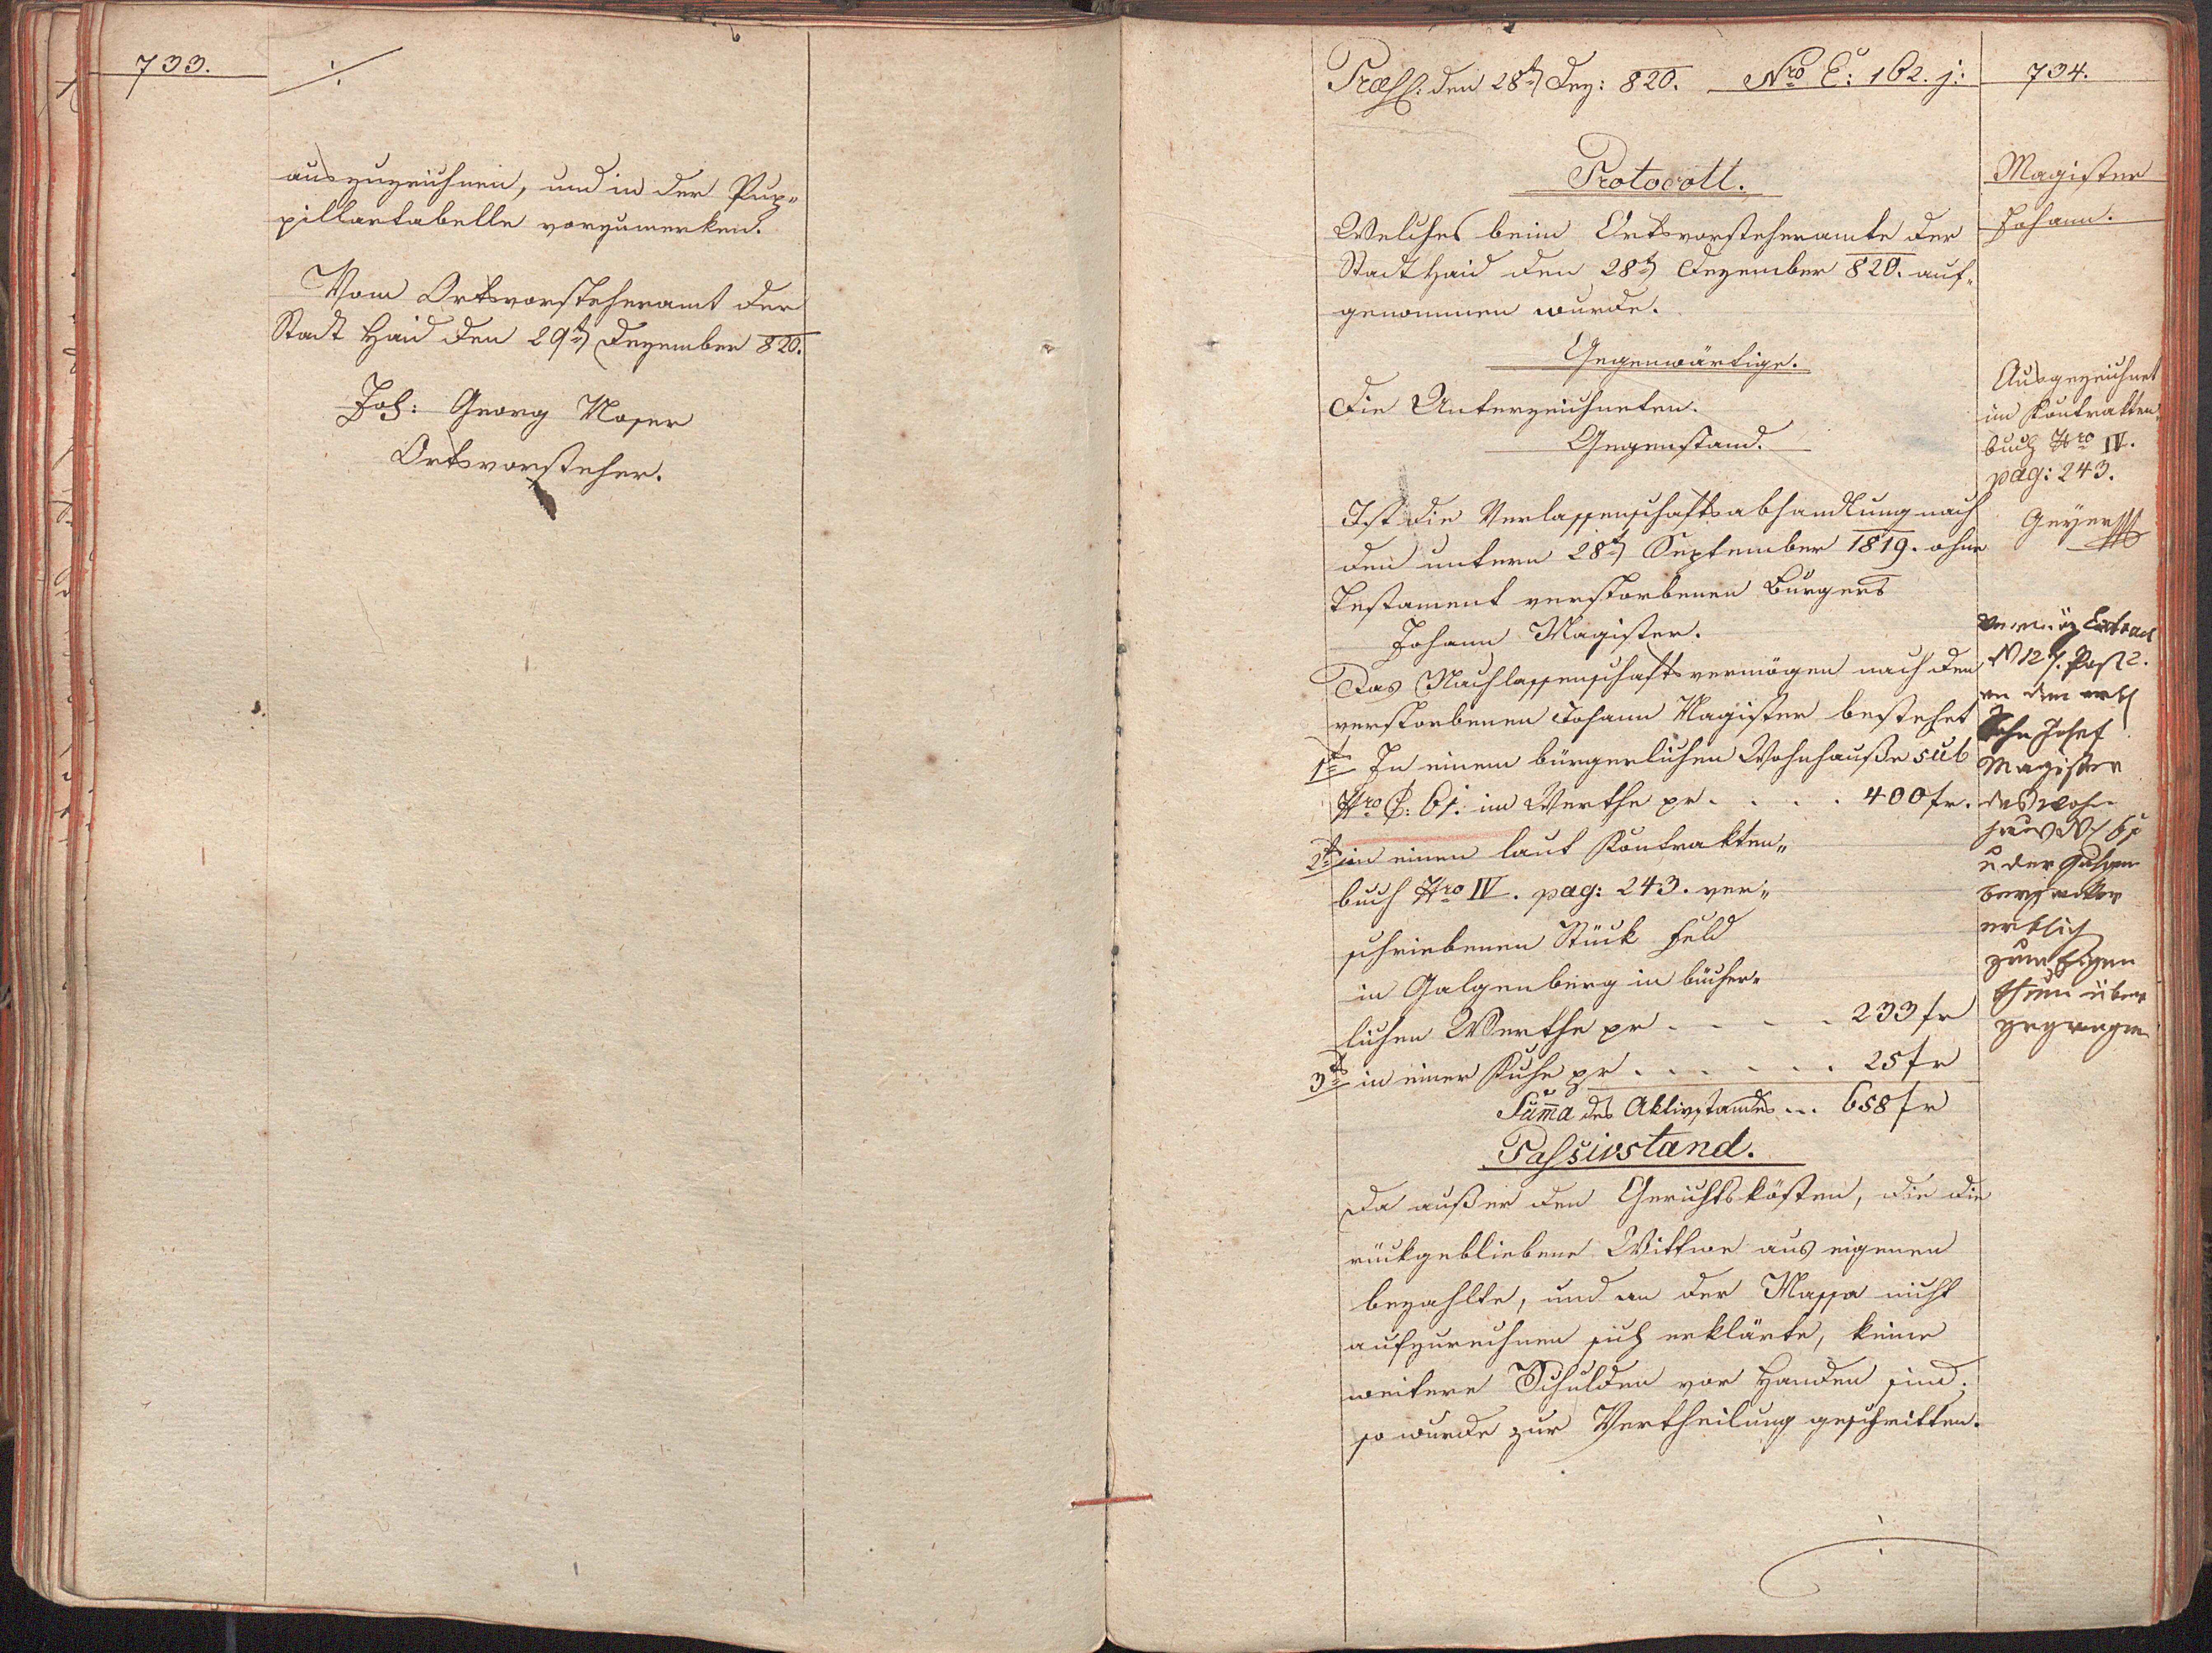 733.
./.
auszuzeichnen, und in der Pup„
pillartabelle vorzumerken.
Vom Ortsvorsteheramt der
Stadt Haid den 29t Dezember 820.
Joh: Georg Moser
Ortsvorsteher.
Præss: den 28t Dez: 820. Nro E: 162. j:
734.
Protocoll.
Welches beim Ortsvorsteheramte der
Stadt Haid den 28t Dezember 820. auf„
genommen wurde.
Gegenwärtige.
Die Unterzeichneten.
Gegenstand.
Ist die Verlassenschaftsabhandlung nach
den unterm 28t September 1819. ohne
Testament verstorbenen Bürgers
Johann Magister.
Das Nachlassenschaftsvermögen nach den
verstorbenen Johann Magister bestehet
1tens In einem bürgerlichen Wohnhauße sub
Nro C: 61. im Werthe pr . . . . 400 fr.
2t in einen laut Kontrakten„
buch Nro IV. pag: 243. ver„
schriebenen Stück Feld
in Galgenberg in bücher„
lichen Werthe pr . . . . 233 fr
3t in einer Kuhe pr . . . . . . 25 fr
Suma des Aktivstandes ... 658 fr
Passivstand.
Da außer den Gerichtskösten, die die
rückgebliebene Wittwe aus eigenen
bezahlte, und an der Massa nicht
aufzurechnen sich erklärte, keine
weitere Schulden vor Handen sind.
so wurde zur Vertheilung geschritten.
./.
Magister
Johann.
Ausgezeichnet
im Kontrakten„
buch Nro IV.
pag: 243.
Geyer
Vermög Extract
Post 2.
an den
Sohn Josef
Magister
das Wohn
haus N 61
u der Galgen
berg acker
erblich
zum Eigen
thum über
gegangen